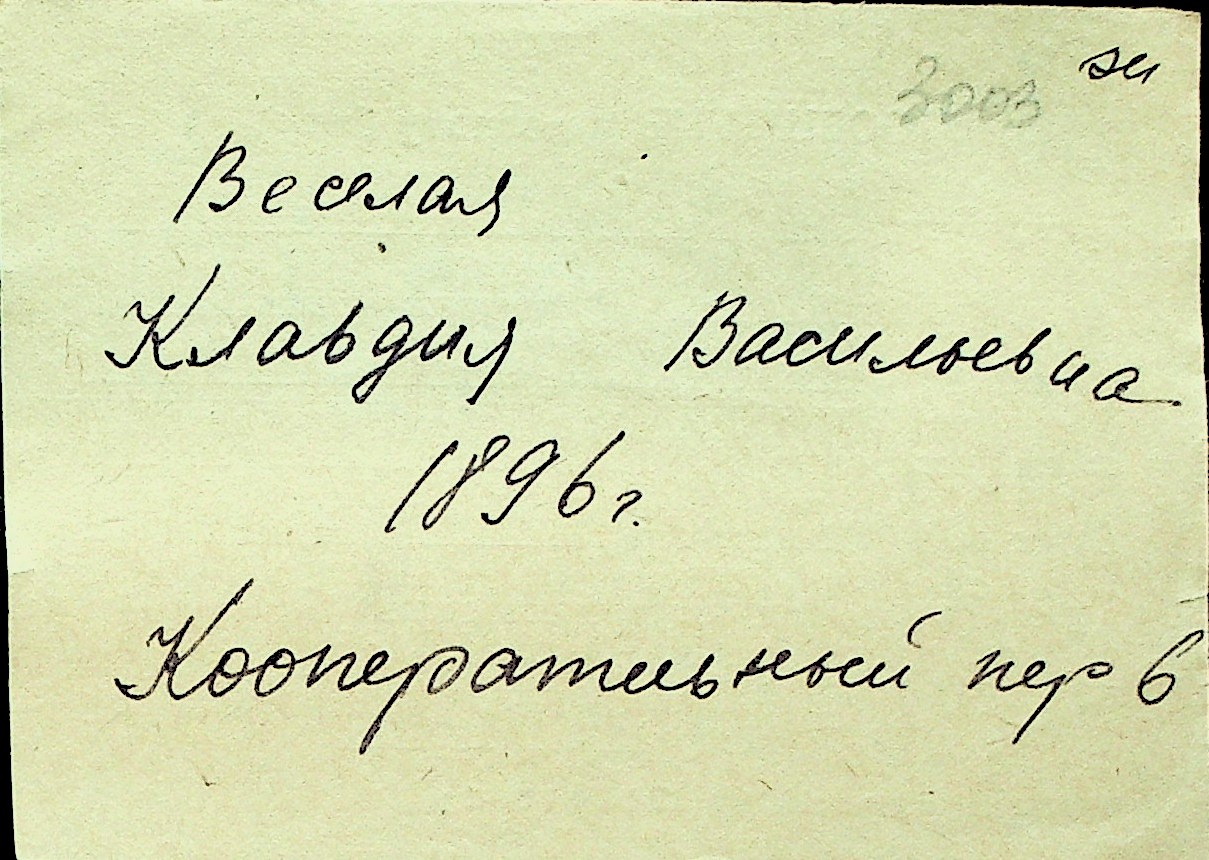 3003
Веселая
Клавдия Васильевна
1896 г.
Кооперативный пер 6